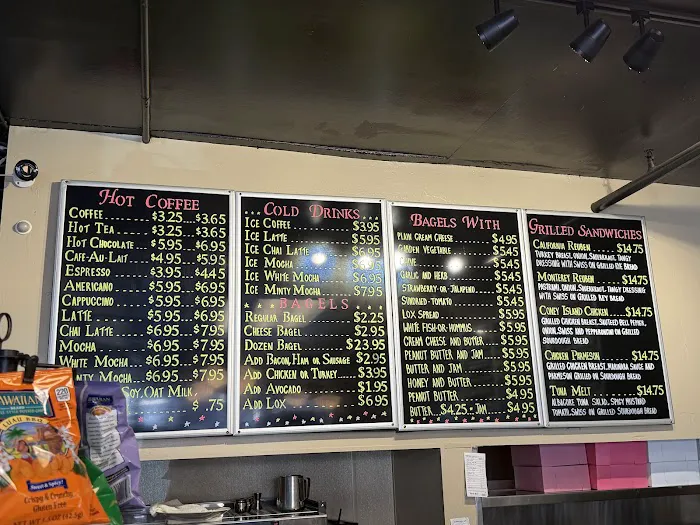 Hot Coffee
Coffee $3.25 $3.65
Hot Tea $3.25 $3.65
Hot Chocolate $5.95 $6.95
Cafe-Au-Lait $4.95 $5.95
Espresso $3.95 $4.45
Americano $5.95 $6.95
Cappuccino $5.95 $6.95
Latte $5.95 $6.95
Chai Latte $6.95 $7.95
Mocha $6.95 $7.95
White Mocha $6.95 $7.95
inty Mocha $6.95 $7.95
Soy, Oat Milk
$ .75
Cold Drinks
Ice Coffee $3.95
Ice Latte $5.95
Ice Chai Latte $6.95
Ice Mocha
Ice White Mocha $6.95
Ice Minty Mocha $7.95
Bagels
Regular Bagel $2.25
Cheese Bagel $2.95
Dozen Bagel $23.95
Add Bacon, Ham or Sausage $2.95
Add Chicken or Turkey $3.95
Add Avocado $1.95
Add Lox $6.95
Bagels With
Plain Cream Cheese $4.95
Garden Vegetable $5.45
$5.45
Garlic and Herb $5.45
Strawberry-or-Jalapeno $5.45
Sundried-Tomato $5.45
Lox Spread $5.95
White Fish-or-Hommus $5.95
Cream Cheese and Butter $5.95
Peanut Butter and Jam $5.95
Butter and Jam $5.95
Honey and Butter $5.95
Peanut Butter $4.95
Butter $4.25 - Jam $4.95
Grilled Sandwiches
California Reuben $14.75
Turkey Breast, Onion, Sauerkraut, Tangy
Dressing with Swiss on Grilled Rye Bread
Monterey Reuben $14.75
Pastrami, Onion, Sauerkraut, Tangy Dressing
with Swiss on Grilled Rey Bread
Coney Island Chicken $14.75
Grilled Chicken Breast, Sauteed Bell Pepper,
Onion, Swiss and Pepperoncini on Grilled
Sourdough Bread
Chicken Parmeson $14.75
Grilled Chicken Breast, Marinara Sauce and
Parmeson Grilled on Sourdough Bread
Tuna Melt $14.75
Albacore Tuna Salad, Spicy Mustard
Tomato, Swiss on Grilled Sourdough Bread
HAWAIIAN
LUAU BBQ
Sweet & Spicy!
Crispy & Crunchy
Gluten Free